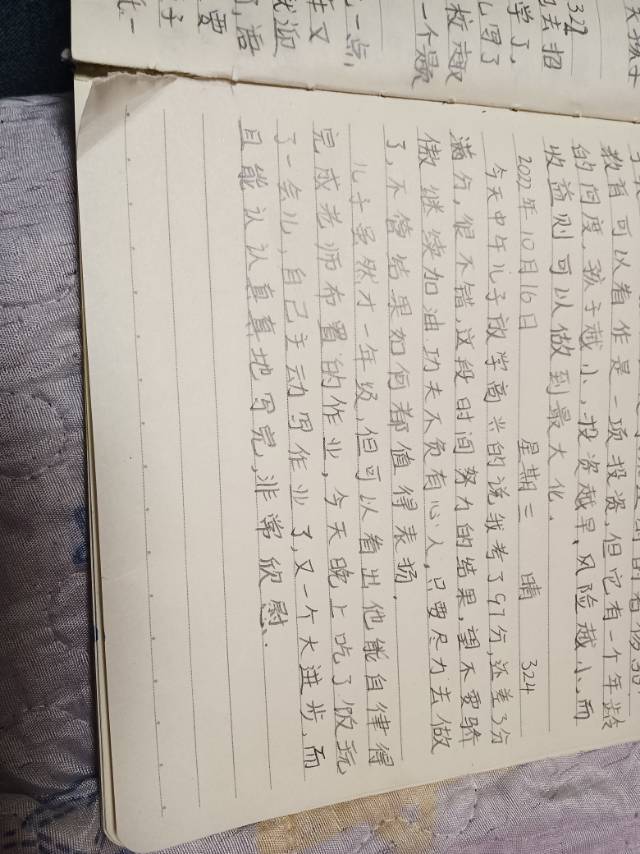 教育可以看作是一项投资,但它有一个年龄
的问度,孩子越小,投资越早,风险越小,而
收益则可以做到最大化。
2022年10月16日 星期三 晴 324
今天中午儿子放学高兴的说我考了97分,还差3分
满分,很不错,这段时间努力的结果,望不要骄
傲继续加油,功夫不负有心人,只要尽力去做
了,不管结果如何都值得表扬.
儿子虽然才一年级,但可以看出他能自律得
完成老师布置的作业,今天晚上吃了饭玩
了一会儿,自己主动写作业了,又一个大进步,而
且能认认真真地写完,非常欣慰.